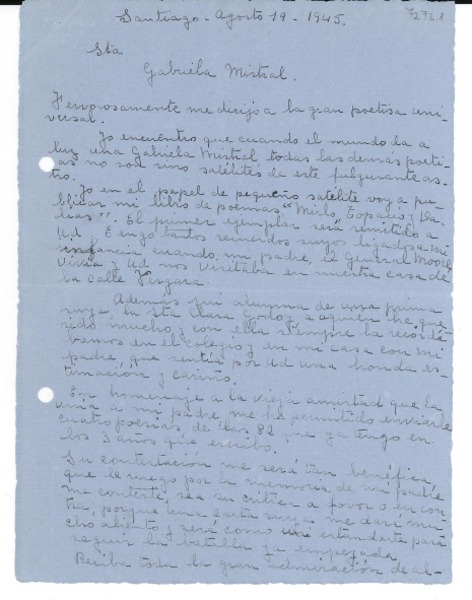 Santiago - Agosto 19 - 1945.
72721
Sta
Gabriela Mistral.
Fervorosamente me dirijo a la gran poetisa uni-
versal.
Yo encuentro que cuando el mundo da a
luz una Gabriela Mistral todas las demas poeti-
sas no son sino satélites de este fulgurante as-
tro.
Yo en el papel de pequeño satélite voy a pu-
blicar mi libro de poemas "Mirlo, Topacio y Da-
lias". El primer ejemplar será remitido a
Ud. Tengo tantos recuerdos suyos ligados a mi
infancia cuando mi padre, el General
vivia y Ud nos visitaba en nuestra casa de
la calle Vergara.
Además fui alumna de una prima
suya, la Sta Clara Godoy a quien he que-
rido mucho y con ella siempre la recordá-
bamos en el colegio y en mi casa con mi
padre que sentia por Ud una honda es-
timación y cariño.
En homenaje a la vieja amistad que la
unía a mi padre me he permitido enviarle
cuatro poesias de las 82 que ya tengo en
los 3 años que escribo.
Su contestación me será tan benéfica,
que le ruego por la memoria de mi padre
me conteste, sea su critica a favor o en con-
tra, porque una carta suya me dará mu-
cho aliento y será como un estandarte para
seguir la batalla ya empezada.
Reciba toda la gran admiración de al-